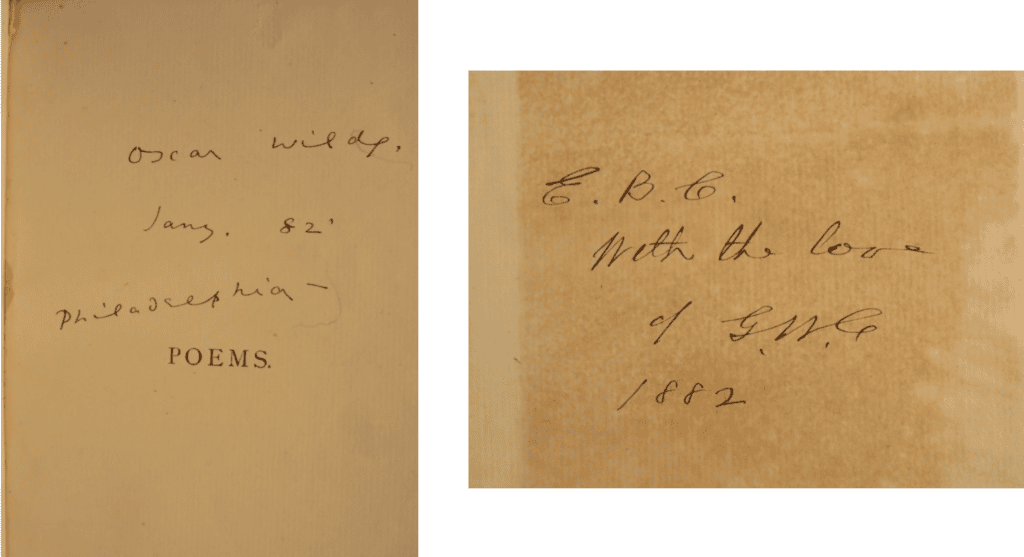 Oscar Wilde.
Jany. 82'
Philadelphia –
POEMS.
E. B. C.
With the love
of G. W. C
1882